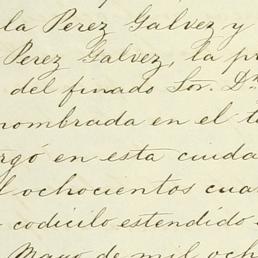 la Perez Galvez y
Perez Galvez, la pr
del finado Sor. Dn
nombrada en el t
rgó en esta ciuda
l ochocientos cua
codicilo estendido
Mayo de mil och